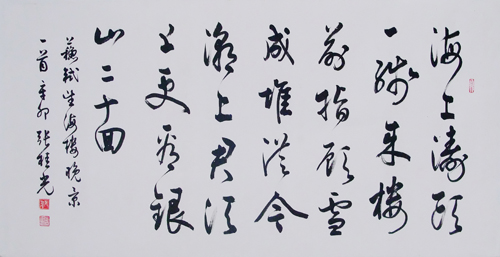 海上濤頭
一線来樓
前指顧雪
成堆從今
潮上君須
上更看銀
山二十回
蘇軾望海樓晚景
一首辛卯張桂光